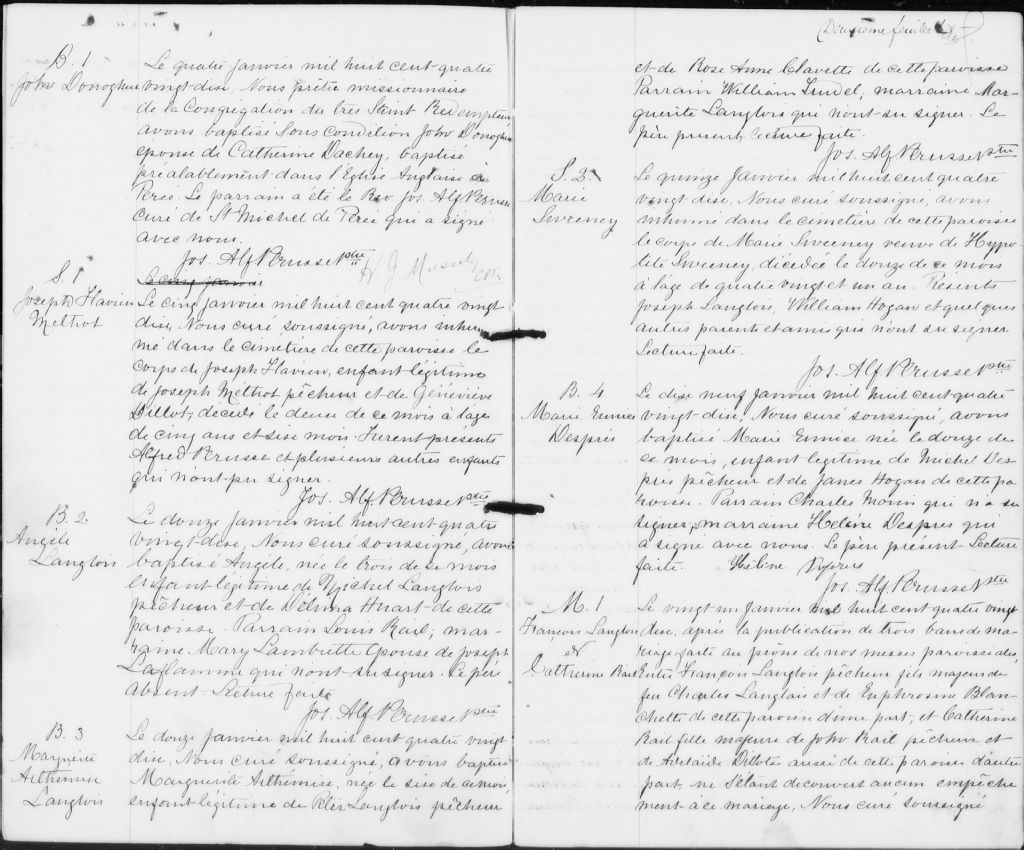 B. 1
John Donoghue
Le quatre janvier mil huit cent quatre
vingt-dise. Nous prêtre missionnaire
de la Congrégation du très Saint Redempteur
avons baptisé sous condition John Donoghue
epouse de Catherine Dachey, baptisé
préalablement dans l'Eglise Anglaise à
Percé. Le parrain a été le Rev Jos. Alf Perusse
curé de St Michel de Percé qui a signé
avec nous.
Jos. Alf Perusse Ptre
S. 1
Joseph Flavien
Meltrot
Le cinq janvier
Le cinq janvier mil huit cent quatre vingt
dise, Nous curé soussigné, avons inhu-
mé dans le cimetière de cette paroisse le
corps de Joseph Flavien, enfant légitime
de Joseph Meltrot pêcheur et de Géneviève
Dillot, décédé le deux de ce mois à l'age
de cinq ans et sise mois. Furent presents
Alfred Perusse et plusieurs autres enfants
qui n'ont pu signer.
Jos. Alf Perusse Ptre
B. 2
Angèle
Langlois
Le douze janvier mil huit cent quatre
vingt-dise, Nous curé soussigné, avons
baptisé Angèle, née le trois de ce mois
enfant légitime de Michel Langlois
pêcheur et de Delima Huart de cette
paroisse. Parrain Louis Rail; mar-
raine Mary Lambrette epouse de Joseph
Laflamme qui n'ont su signer. Le père
absent Lecture faite
Jos. Alf Perusse Ptre
B. 3
Marguerite
Arthémise
Langlois
Le douze janvier mil huit cent quatre vingt
dise, Nous curé soussigné, avons baptisé
Marguerite Arthémise, née le sise de ce mois,
enfant légitime de Peter Langlois pêcheur
(Deuxième feuillet)
et de Rose Anne Clavette de cette paroisse
Parrain William Lindel, marraine Mar-
guerite Langlois qui n'ont su signer. Le
père present, Lecture faite.
Jos. Alf Perusse Ptre
S. 2
Marie
Sweeney
Le quinze janvier mil huit cent quatre
vingt dise, Nous curé soussigné, avons
inhumé dans le cimetière de cette paroisse
le corps de Marie Sweeney veuve de Hypo-
lite Sweeney, décédée le douze de ce mois
à l'age de quatre vingt et un an. Présents
Joseph Langlois, William Hogan et quelques
autres parents et amis qui n'ont su signer
Lecture faite.
Jos. Alf Perusse Ptre
B. 4
Marie Eunice
Despres
Le dise neuf janvier mil huit cent quatre
vingt-dise, Nous curé soussigné, avons
baptisé Marie Eunice née le douze de
ce mois, enfant legitime de Michel Des-
pres pêcheur et de Janes Hogan de cette pa-
roisse. Parrain Charles Morin qui n'a su
signer, marraine Hélène Despres qui
a signé avec nous. Le père présent Lecture
faite. Hélène
Jos. Alf Perusse Ptre
M. 1
François Langlois
et
Catherine Rail
Le vingt un janvier mil huit cent quatre vingt
dise, après la publication de trois bans de ma-
riage faite au prône de nos messes paroissiales,
Entre François Langlois pêcheur fils majeur de
feu Charles Langlois et de Euphrosine Blan-
chette de cette paroisse d'une part, et Catherine
Rail fille majeure de John Rail pêcheur et
de Adelaide Dillote aussi de cette paroisse d'autre
part, ne s'étant decouvert aucun empêche-
ment à ce mariage, Nous curé soussigné